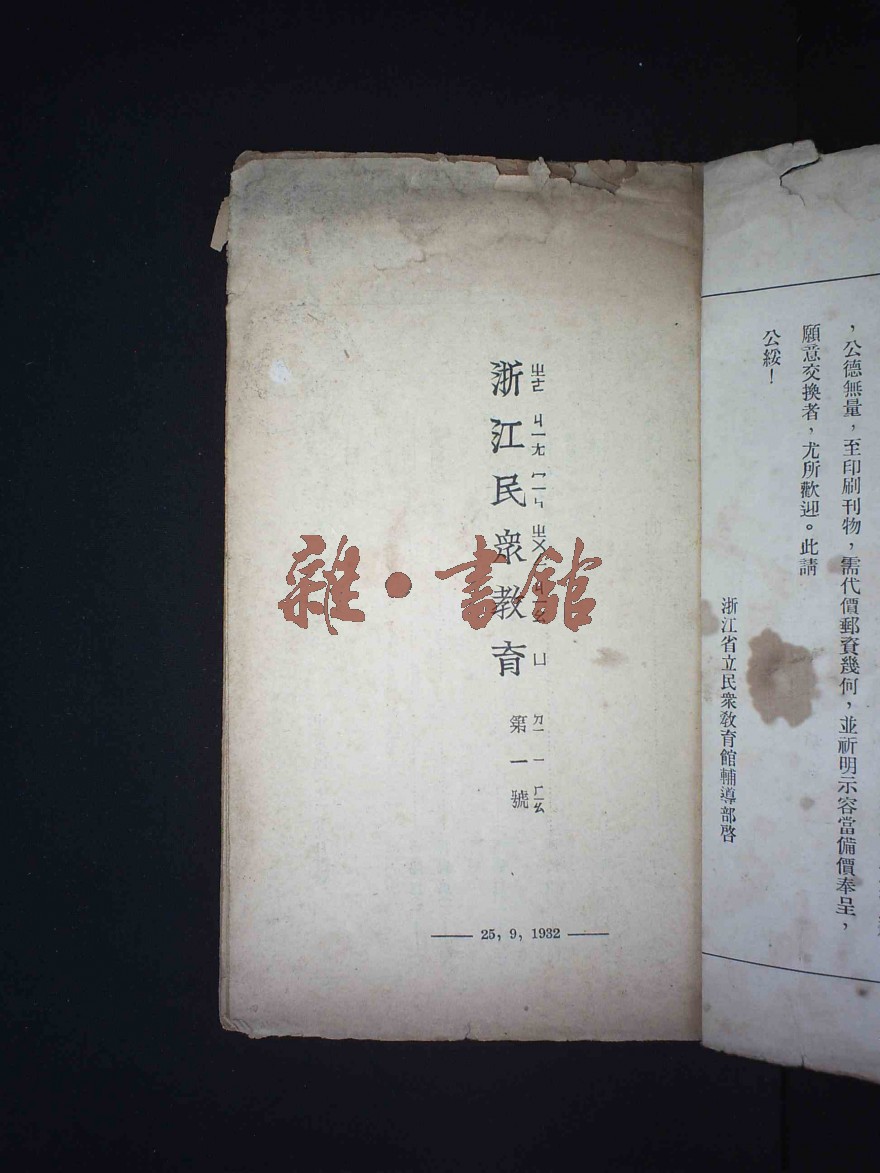 ，公德無量，至印刷刊物，需代價郵資幾何，並祈明示容當備價奉呈，
願意交換者，尤所歡迎。此請
公綏！
浙江省立民衆敎育館輔導部啓
浙江民衆教育
第一號
25, 9, 1932
雜·書館